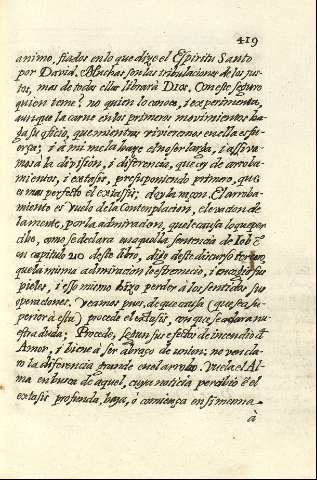 419
animo, fiados en lo que dize el Espiritu Santo
por David. Muchas son las tribulaciones de los jus-
tos, mas de todas ellas librarà Dios. Con este seguro
quien teme? no quien lo conoce, i experimenta,
aunque la carne en los primeros movimientos ha-
ga su oficio, que mientras vivieremos en ella es fu-
erça; i à mi me la haze el no ser larga, i assi re-
 la division, i diferencia, que ay de arroba-
mientos, i extasis, presuponiendo primero, que
es mas perfecto el extassis; doy la raçon. El arroba-
miento es vuelo de la Contemplacion, elevacion de
la mente, por la admiracion, que le causa lo que per-
cibe, como se declara en aquella sentencia de Iob
en capitulo de este libro, digo deste discurso
que la mima admiracion lo estremeciò, i encogiò sus
pieles, i esso mismo hizo perder à los sentidos sus
operaciones. Veamos pues, de que causa (que sea su-
perior à esta) procede el extasis, con que se aclara nu-
estra duda; Procede, segun sus efectos de incendio đ
Amor, i viene à ser abraço de union; no ven cla-
ro la diferencia grande en el arrobo. Vuela el Al-
ma en busca de aquel, cuya noticia percibiò
extasis profunda, baja, ò comiença en si mesma
à